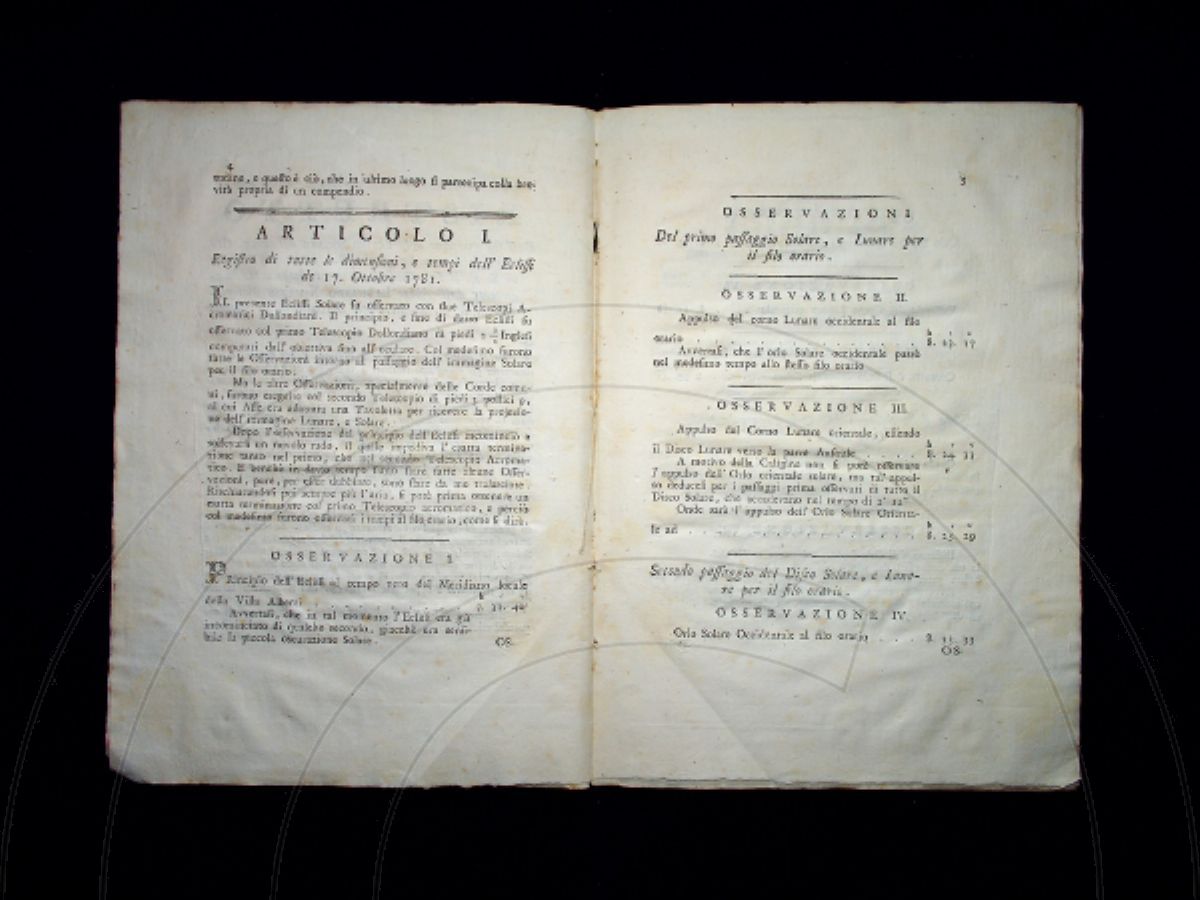 4
e questo è ciò, che in ultimo luogo si partecipa colla bre-
vità propria di un compendio.
ARTICOLO I.
Registro di tutte le dimensioni, e tempi dell' Eclissi
de 17. Ottobre 1781.
IL presente Eclissi Solare fu osservato con due Telescopj A-
cromatici Dollondiani. Il principio, e fine di detto Eclissi fu
osservato col primo Telescopio Dollondiano di piedi Inglesi
computati dall' obiettiva fino all' oculare. Col medesimo furono
fatte le Osservazioni intorno al passaggio dell' immagine Solare
per il filo orario.
Ma le altre Osservazioni, specialmente delle Corde comu-
ni, furono eseguite col secondo Telescopio di piedi 3 pollici
al cui Asse era adattata una Tavoletta per ricevere la projezio-
ne dell' immagine Lunare, e Solare.
Dopo l'osservazione del principio dell' Eclissi incominciò a
sollevarsi un nuvolo rado, il quale impediva l' esatta termina-
zione tanto nel primo, che nel secondo Telescopio Acroma-
tico. E benchè in detto tempo siano state fatte alcune Osser-
vazioni, però, per esser dubbiose, sono state da me tralasciate.
Rischiarandosi poi sempre più l'aria, si potè prima ottenere un
esatta terminazione col primo Telescopio acromatico, e perciò
col medesimo furono osservati i tempi al filo orario, come si dirà.
OSSERVAZIONE I.
PRincipio dell' Eclissi al tempo vero del Meridiano locale
della Villa
Avvertasi, che in tal momento l'Eclissi era già
incominciato di qualche secondo, giacchè era sensi-
bile la piccola oscurazione Solare.
OS-
5
OSSERVAZIONI
Del primo passaggio Solare, e Lunare per
il filo orario.
OSSERVAZIONE II.
Appulso del corno Lunare occidentale al filo
h
orario . . . . . . . . . . . 8. 23. 17
Avvertasi, che l'orlo Solare occidentale passò
nel medesimo tempo allo stesso filo orario
OSSERVAZIONE III.
Appulso dal Corno Lunare orientale, essendo
h
il Disco Lunare verso la parte Australe . . . . . 8. 24. 33
A motivo della Caligine non si potè osservare
l'appulso dell' Orlo orientale solare, ma tal' appul-
so deducesi per i passaggi prima osservati di tutto il
Disco Solare, che scendevano nel tempo di 2' 12"
Onde sarà l'appulso dell' Orlo Solare Orienta-
h
le ad . . . . . . . . . . . 8. 25. 29
Secondo passaggio del Disco Solare, e Luna-
re per il filo orario.
OSSERVAZIONE IV.
Orlo Solare Occidentale al filo orario . . . 8. 33
OS-